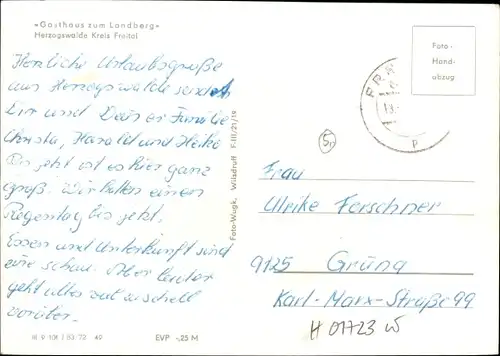 «Gasthaus zum Landberg»
Herzogswalde Kreis Freital
Herzliche Urlaubsgrüße
aus Herzogswalde sendet
Dir und Deiner Familie
Christa, Harald und Heike
Bis jetzt ist es hier ganz
groß. Wir hatten einen
Regentag bis jetzt,
Essen und Unterkunft sind
eine schau. Aber leider
geht alles zu schnell
vorüber.
III 9 101 / 83 72 49
EVP -,25 M
Foto-Wugk, Wilsdruff F-III/21/19
Foto-
Hand-
abzug
FRE
P
Frau
Ulrike Ferschner
9125 Grüna
Karl-Marx-Straße 99
H 01723 W